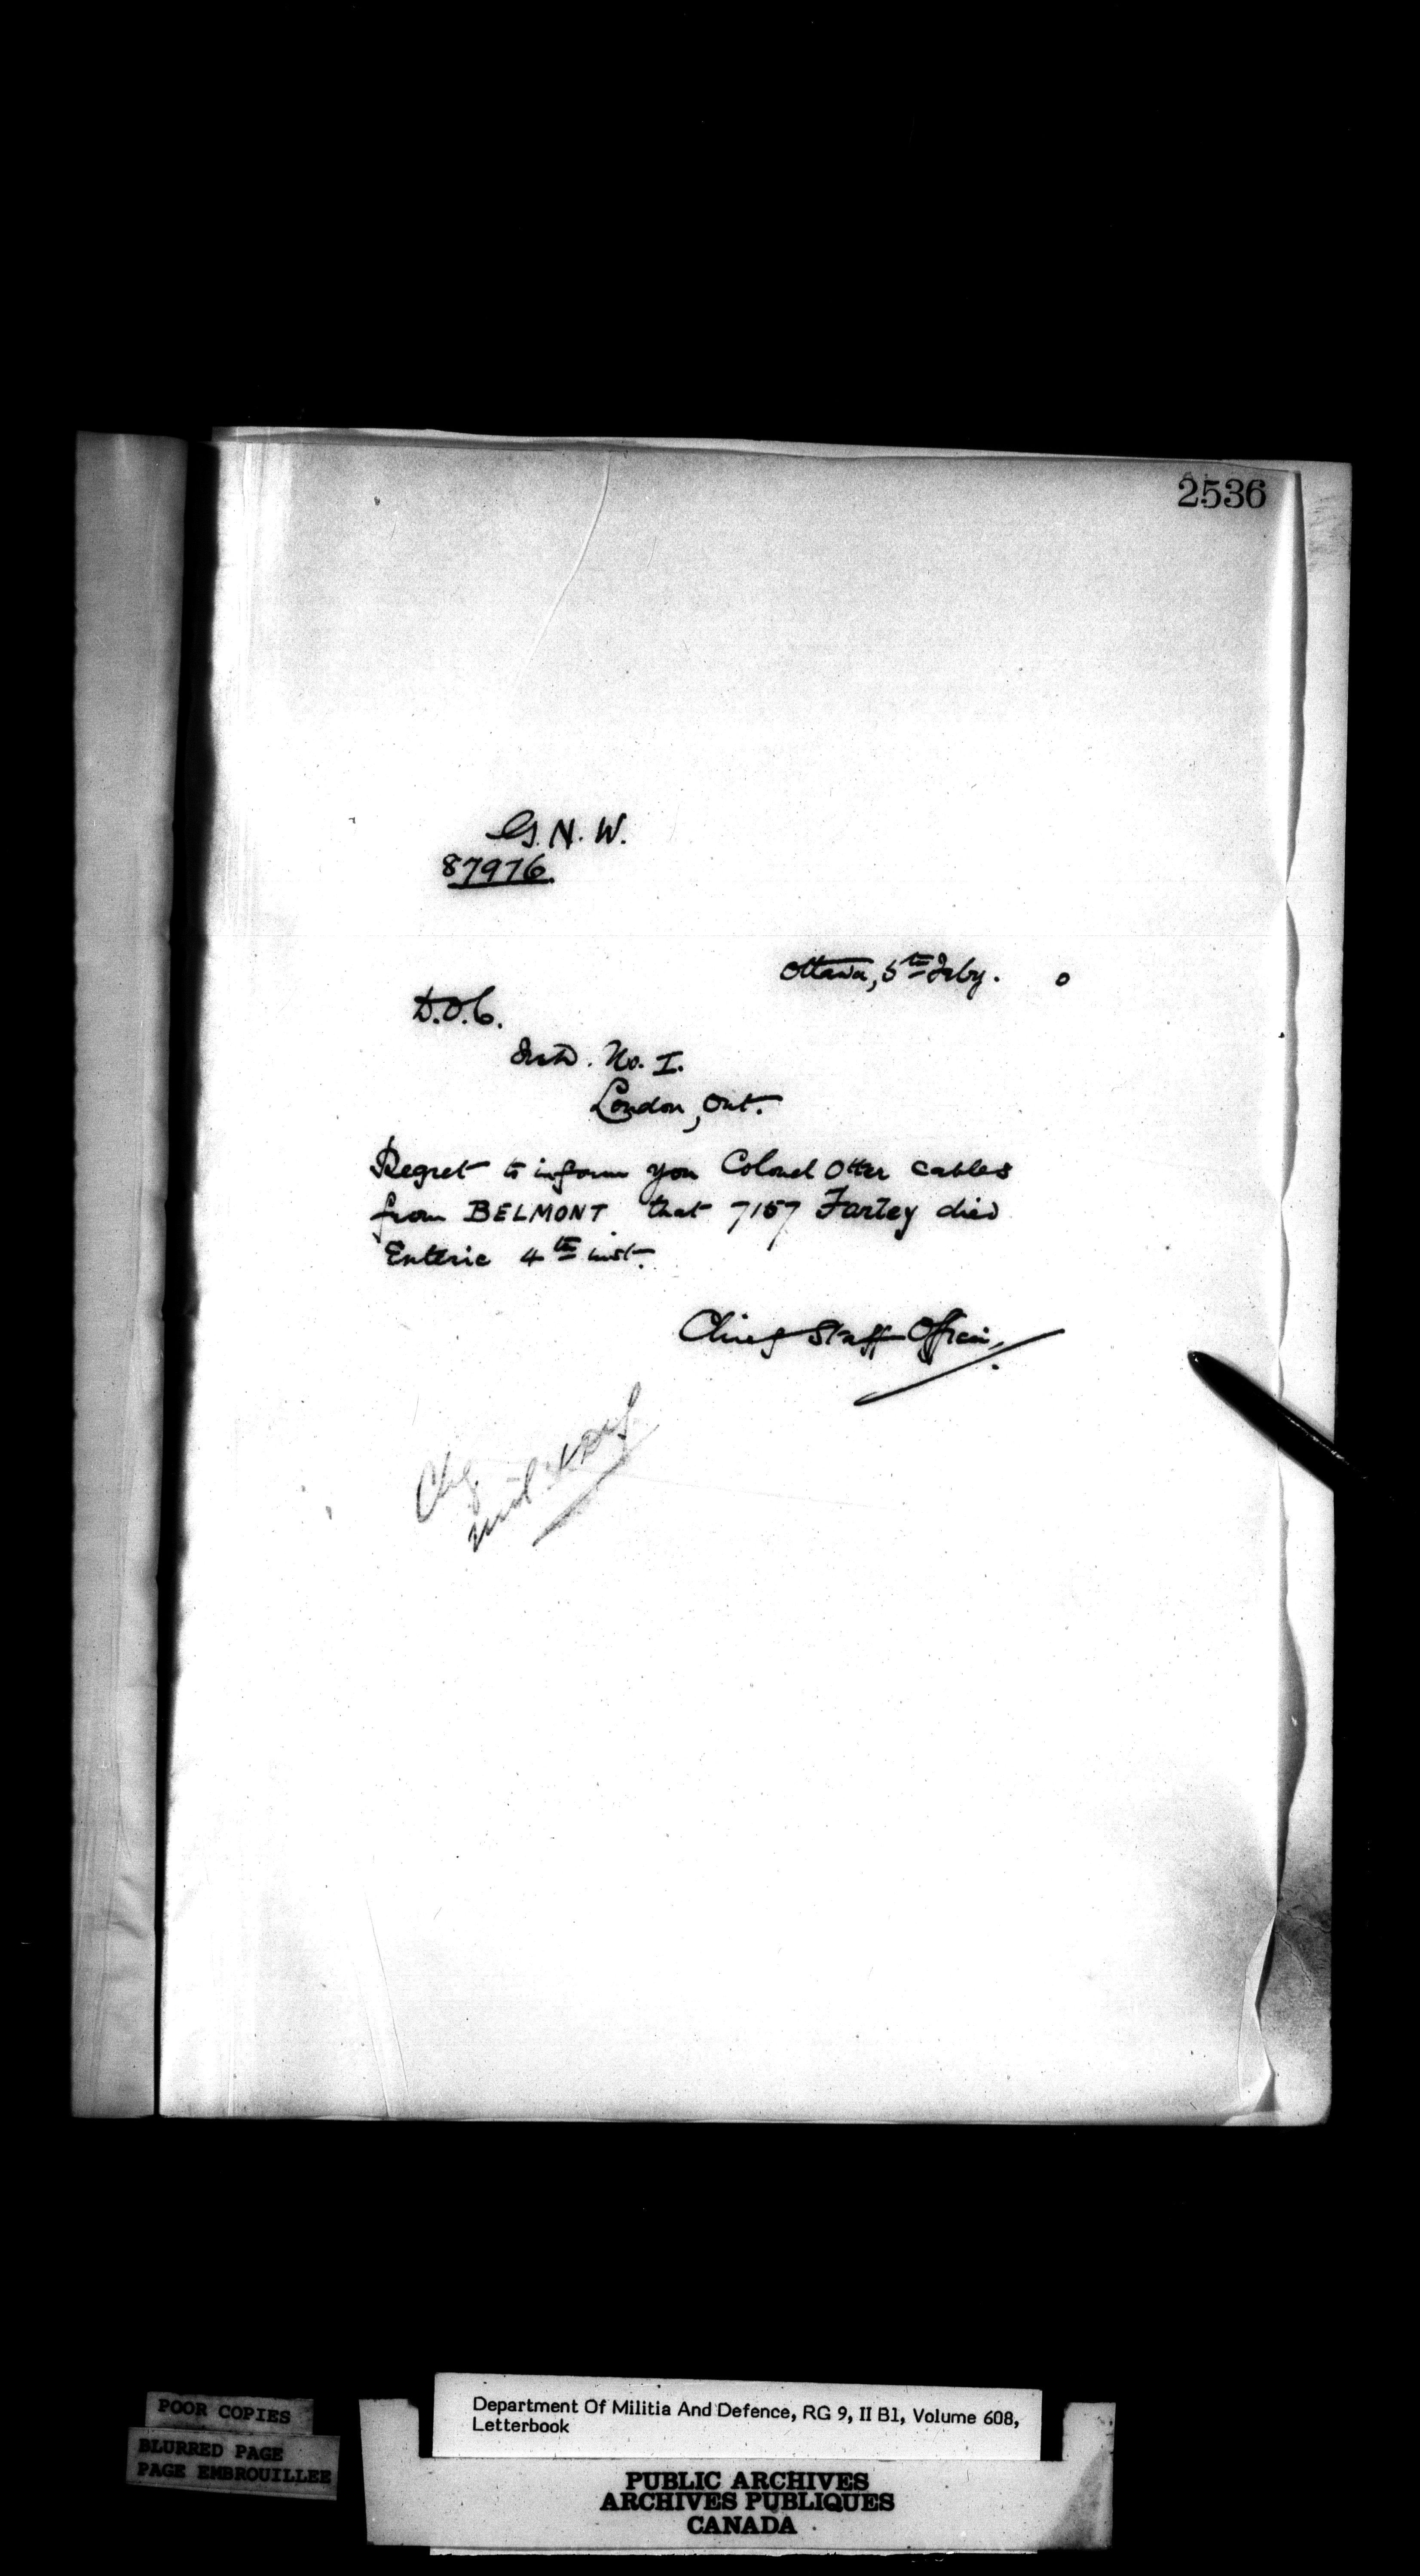 2536
G. N. W.
87976.
Ottawa, 5th Feby. 0
D.O.C.
No. I.
London, Ont.
Regret to inform you Colonel Otter cables
from BELMONT that 7157 Farley died
Enteric 4th inst.
Chief Staff Officer.
Chg.
POOR COPIES
BLURRED PAGE
PAGE EMBROUILLEE
Department Of Militia And Defence, RG 9, II B1, Volume 608,
Letterbook
PUBLIC ARCHIVES
ARCHIVES PUBLIQUES
CANADA